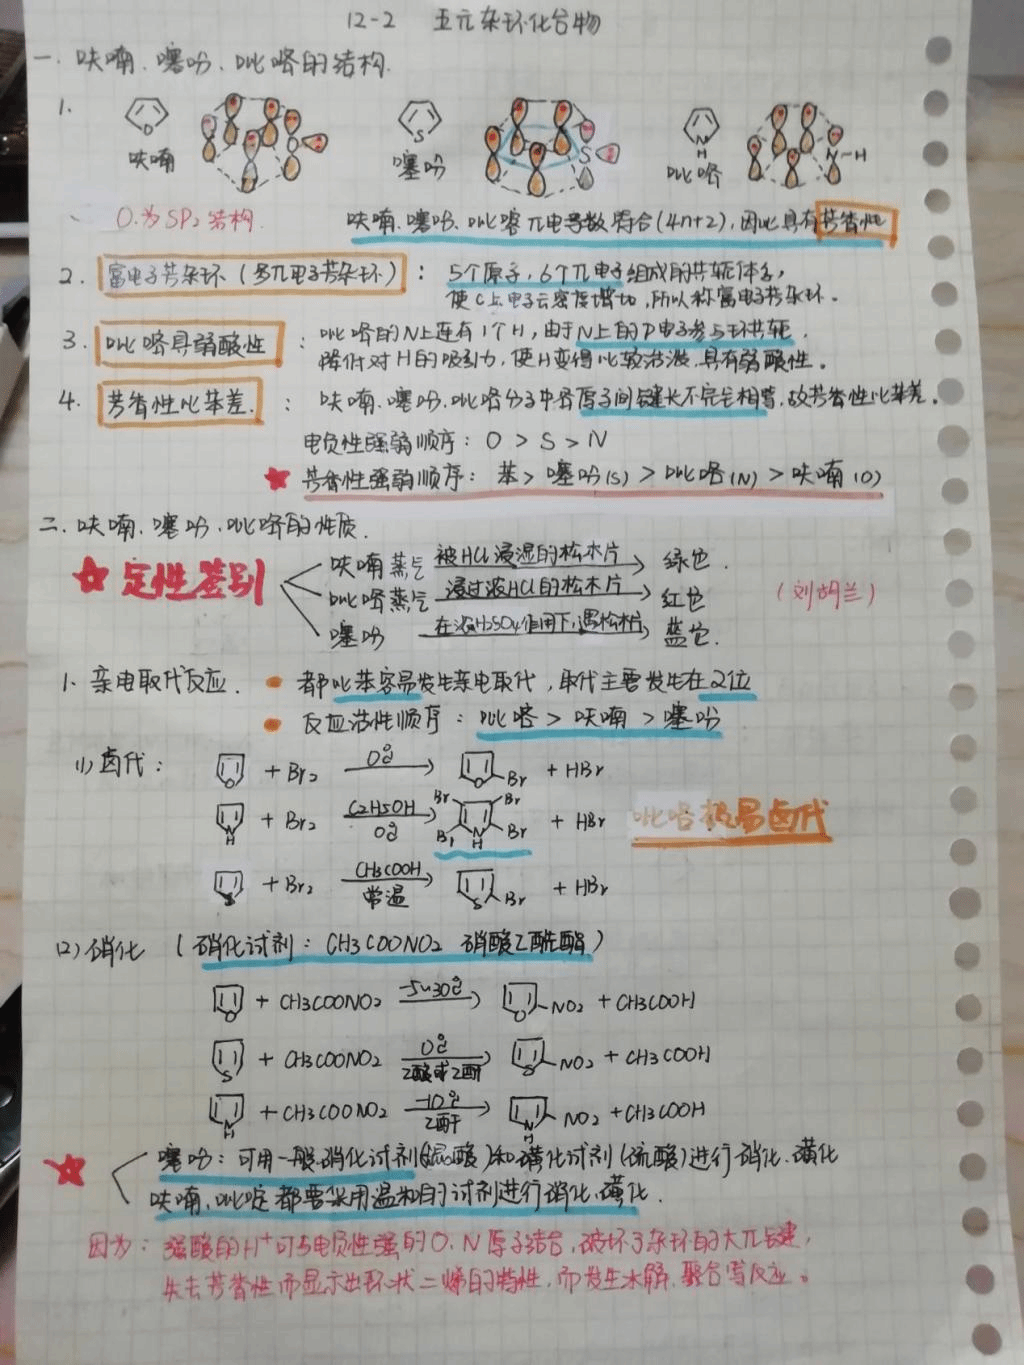 12-2 五元杂环化合物
一.呋喃.噻吩.吡咯的结构.
1. O 呋喃 S 噻吩 S N H 吡咯 N-H
O.为SP2结构. 呋喃.噻吩.吡咯π电子数符合(4n+2),因此具有芳香性
2. 富电子芳杂环(多π电子芳杂环): 5个原子,6个π电子组成的共轭体系,
使C上电子云密度增加,所以称富电子芳杂环.
3. 吡咯具弱酸性: 吡咯的N上连有1个H,由于N上的P电子参与环共轭.
降低对H的吸引力,使H变得比较活泼,具有弱酸性.
4. 芳香性比苯差.: 呋喃.噻吩.吡咯分子中各原子间键长不完全相等,故芳香性比苯差.
电负性强弱顺序: O > S > N
芳香性强弱顺序: 苯 > 噻吩(S) > 吡咯(N) > 呋喃(O)
二.呋喃.噻吩.吡咯的性质.
定性鉴别
呋喃蒸气 被HCl浸湿的松木片 → 绿色.
吡咯蒸气 浸过浓HCl的松木片 → 红色 (刘胡兰)
噻吩 在浓H2SO4作用下,遇松木片 → 蓝色.
1.亲电取代反应. 都比苯容易发生亲电取代,取代主要发生在2位
反应活性顺序: 吡咯 > 呋喃 > 噻吩
(1)卤代: O + Br2 0℃ → O Br + HBr
N H + Br2 C2H5OH 0℃ → Br Br Br Br N H + HBr 吡咯极易卤代
S + Br2 CH3COOH 常温 → S Br + HBr
(2)硝化 (硝化试剂: CH3COONO2 硝酸乙酰酯)
O + CH3COONO2 -5~30℃ → O NO2 + CH3COOH
S + CH3COONO2 0℃ → S NO2 + CH3COOH
N H + CH3COONO2 -10℃ 乙酐 → N H NO2 + CH3COOH
噻吩: 可用一般硝化试剂()和磺化试剂(硫酸)进行硝化.磺化
呋喃.吡啶都要采用温和的试剂进行硝化.磺化.
因为: 强酸的H+可与电负性强的O.N原子结合,破坏了杂环的大π键,
失去芳香性而显示出环状二烯的特性,而发生水解.聚合等反应.